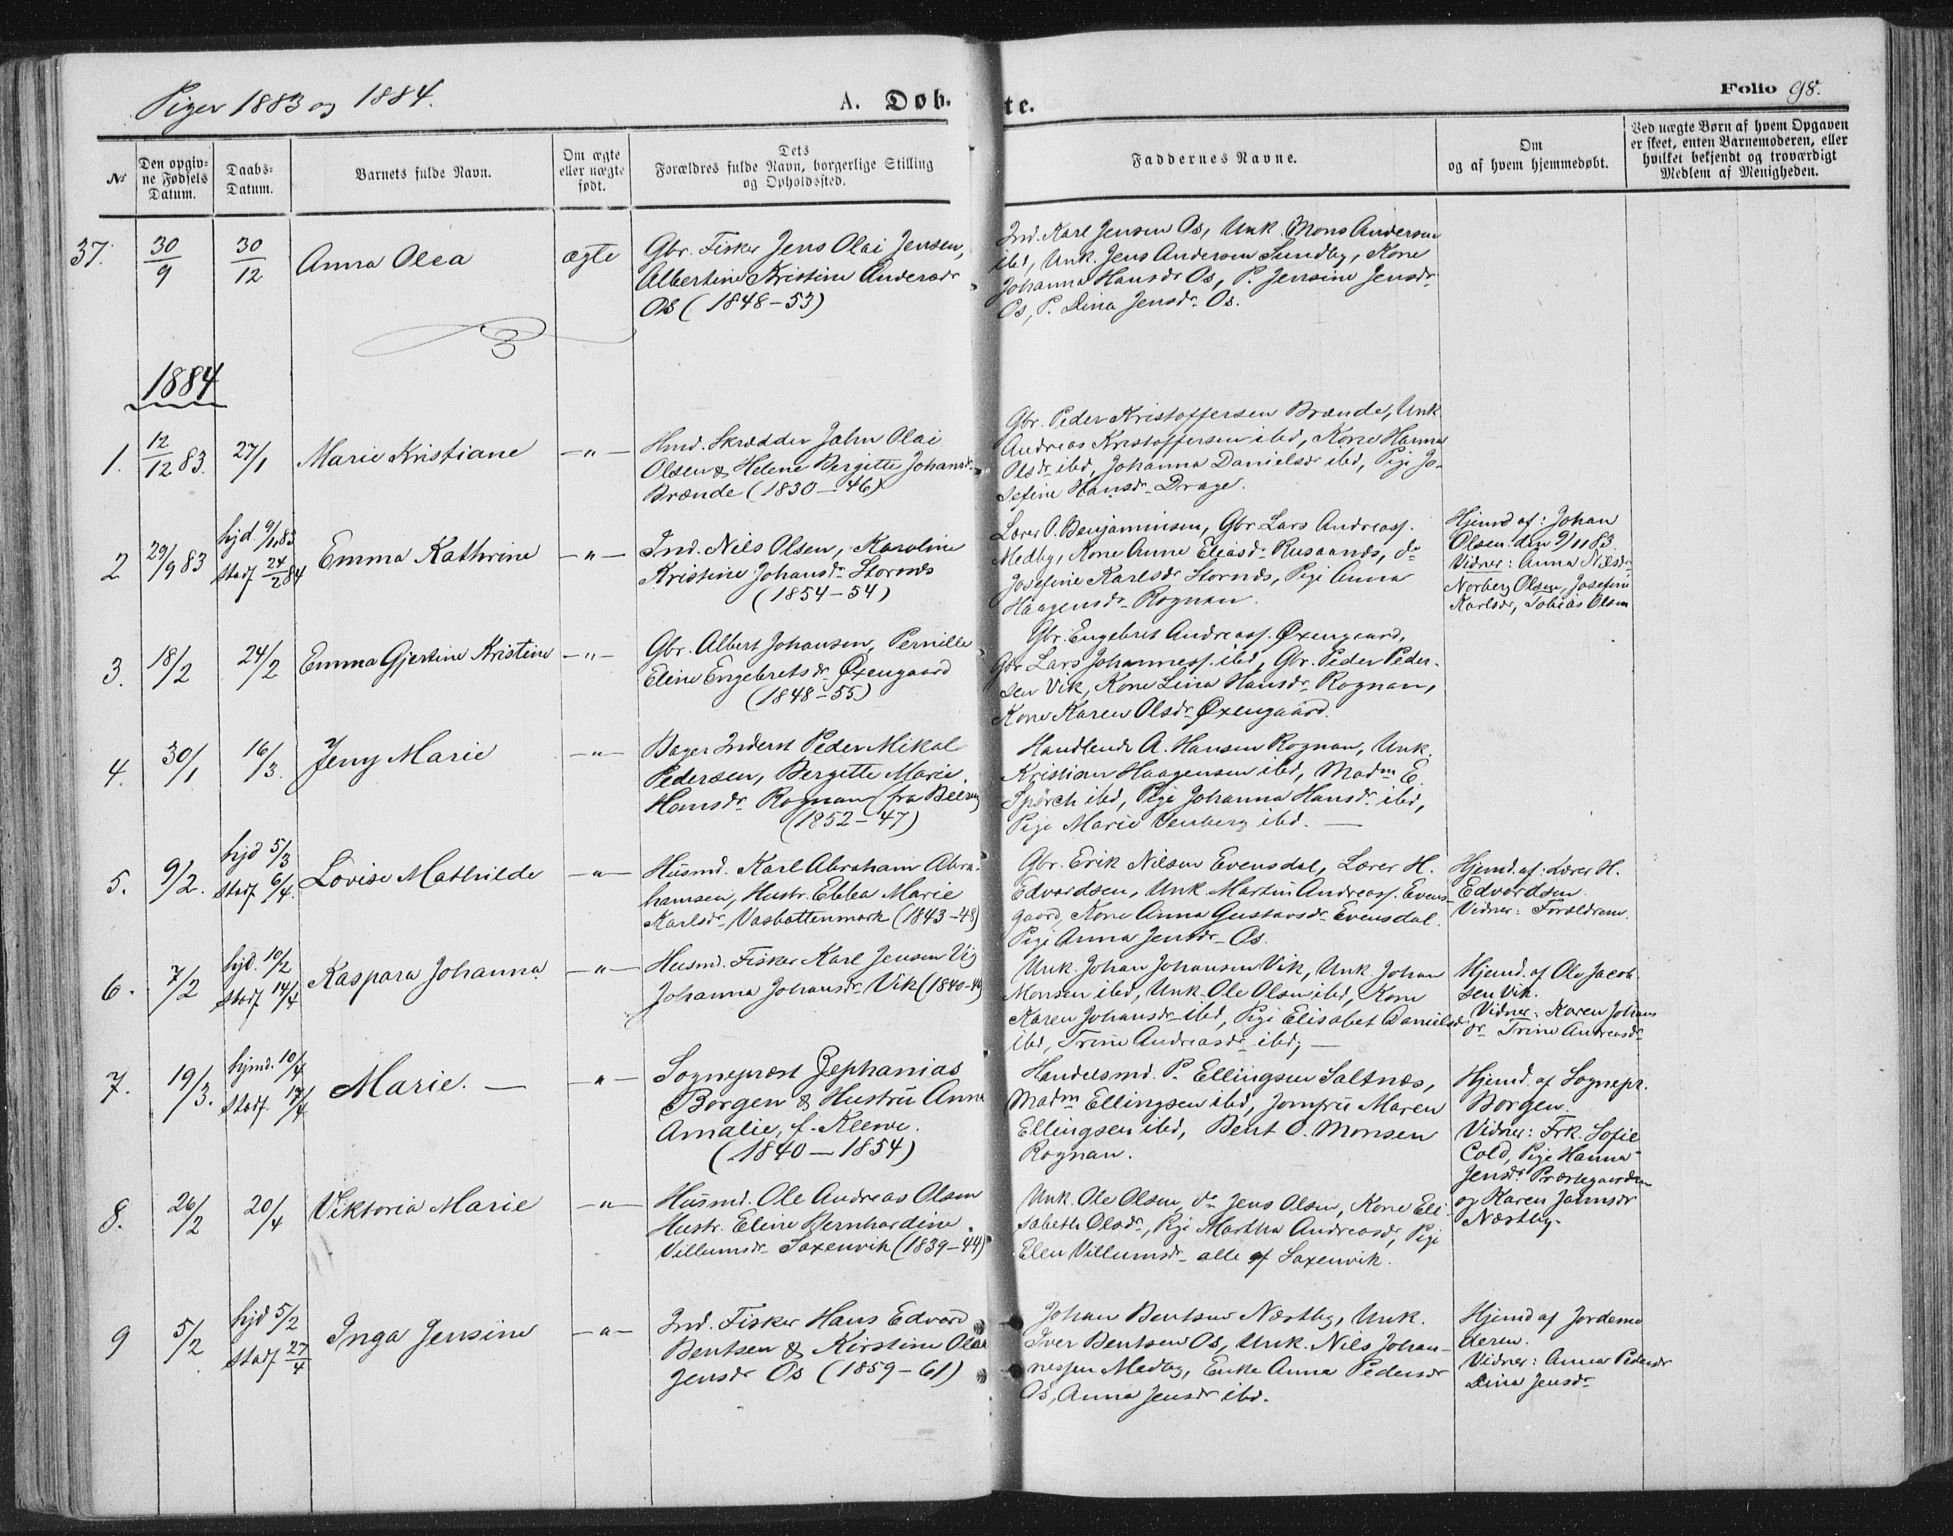 Piger 1883 og 1884.
A. Døbte.
Folio 98.
No
Den opgivne Fødsels Datum.
Daabs-Datum.
Barnets fulde Navn.
Om ægte eller uægte født.
Dets Forældres fulde Navn, borgerlige Stilling og Opholdssted.
Faddernes Navne.
Om og af hvem hjemmedøbt.
Ved uægte Børn af hvem Opgaven er skeet, enten Barnemoderen, eller hvilket bekjendt og troværdigt Medlem af Menigheden.
37. 30/9 30/12 Anna Olea ægte
Gbr. Fisker Jens Olai Jensen,
Albertine Kristine Andersdr
Os (1848-53)
Ind. Karl Jensen Os, Unk. Mons Andersen
ibd, Unk. Jens Andersen Sundby, Kone
Johanna Hansdr Os, P. Jensine Jensdr
Os, P. Dina Jensdr. Os.
1884
1. 12/12 83. 27/1 Marie Kristiane -"-
Hmd. Skrædder Jahn Olai
Olsen & Helene Bergitte Johansdr
Brænde (1830-46)
Gbr. Peder Kristoffersen Brænde, Unk.
Andreas Kristoffersen ibd, Kone Hanna
Olsdr ibd, Johanna Danielsdr ibd, Pige Jo-
sefine Hansdr Drage.
2 29/9 83 hjd. 9/11 83 stadf 24/2 84 Emma Kathrine -"-
Ind. Nils Olsen, Karoline
Kristine Johansdr Stornes
(1854-54)
Lærer O. Benjaminsen, Gbr. Lars Andreass.
Medby, Kone Anne Eliasdr Rusaanes, do
Josefine Karlsdr Stornes, Pige Anna
Haagensdr Rognan.
Hjemd af: Johan
Olsen den 9/11 83.
Vidner: Anna Nilsdr
Norberg Olsen, Josefine
Karlsdr, Tobias Olsen
3. 18/2 24/2 Emma Gjertine Kristine -"-
Gbr. Albert Johansen, Pernille
Eline Engebretsdr Øxengaard
(1848-55)
Gbr. Engebret Andreass. Øxengaard,
Gbr Lars Johanness. ibd, Gbr. Peder Peder-
sen Vik, Kone Lina Hansdr Rognan,
Kone Karen Olsdr Øxengaard.
4. 30/1 16/3. Jeny Marie -"-
Bager Inderst Peder Mikal
Pedersen, Bergitte Marie
Hansdr Rognan (fra
(1852-47)
Handlende A. Hansen Rognan, Unk.
Kristian Haagensen ibd, Madm E.
Spörch ibd, Pige Johanna Hansdr ibd,
Pige Marie ibd. —
5. 9/2. hjd 5/3 stadf 6/4. Lovise Mathilde -"-
Husmd. Karl Abraham Abra-
hamsen, Hustr. Ebba Marie
Karlsdr Vasbottenmark (1843-48)
Gbr. Erik Nilsen Evensdal, Lærer H.
Edvardsen, Unk. Martin Andreass. Evens-
gaard, Kone Anna Gustavsdr Evensdal.
Pige Anna Jensdr Os.
Hjemd. af: Lærer H.
Edvardsen.
Vidner: Forældrene.
6. 7/2 hjd. 10/2 stadf 14/4 Kaspara Johanna -"-
Husmd. Fisker Karl Jensen Vig
Johanna Johansdr Vik (1840-49)
Unk. Johan Johansen Vik, Unk. Johan
Monsen ibd, Unk. Ole Olsen ibd, Kone
Karen Johansdr ibd, Pige Elisabet Danielsdr
ibd, Trine Andreasdr ibd, —
Hjemd. af Ole Jacob-
sen Vik.
Vidner: Karen Johans
dr Trine Andreasdr
7. 19/3. hjmd. 10/4 stadf. 17/4 Marie. — -"-
Sogneprest Zephanias
Borgen & Hustru Anna
Amalie, f. Kleve.
(1840-1854)
Handelsmd. P. Ellingsen Saltnæs,
Madm Ellingsen ibd, Jomfru Maren
Ellingsen ibd, Bent O. Monsen
Rognan.
Hjemd. af Sognepr.
Borgen.
Vidner: Frk. Sofie
Cold, Pige Hanna
Jensdr Præstegaarden
og Karen
Næstby.
8. 26/2 20/4 Viktoria Marie -"-
Husmd. Ole Andreas Olsen
Hustr. Eline Bernhardine
Villumsdr Saxenvik (1839-44)
Unk. Ole Olsen, do Jens Olsen, Kone Eli-
sabeth Olsdr, Pige Martha Andreasdr, Pige
Elen Villumsdr alle af Saxenvik.
9 5/2 hjd 5/2 stadf 27/4 Inga Jensine -"-
Ind. Fisker Hans Edvard
Bentsen & Kirstine Olai
Jensdr Os (1859-61)
Johan Bentsen Næstby, Unk.
Iver Bentsen Os, Unk. Nils Johan-
nessen Medby, Enke Anna Pedersdr
Os, Anna Jensdr ibd.
Hjemd af Jordemo
deren.
Vidner: Anna Pedersdr
Dina Jensdr